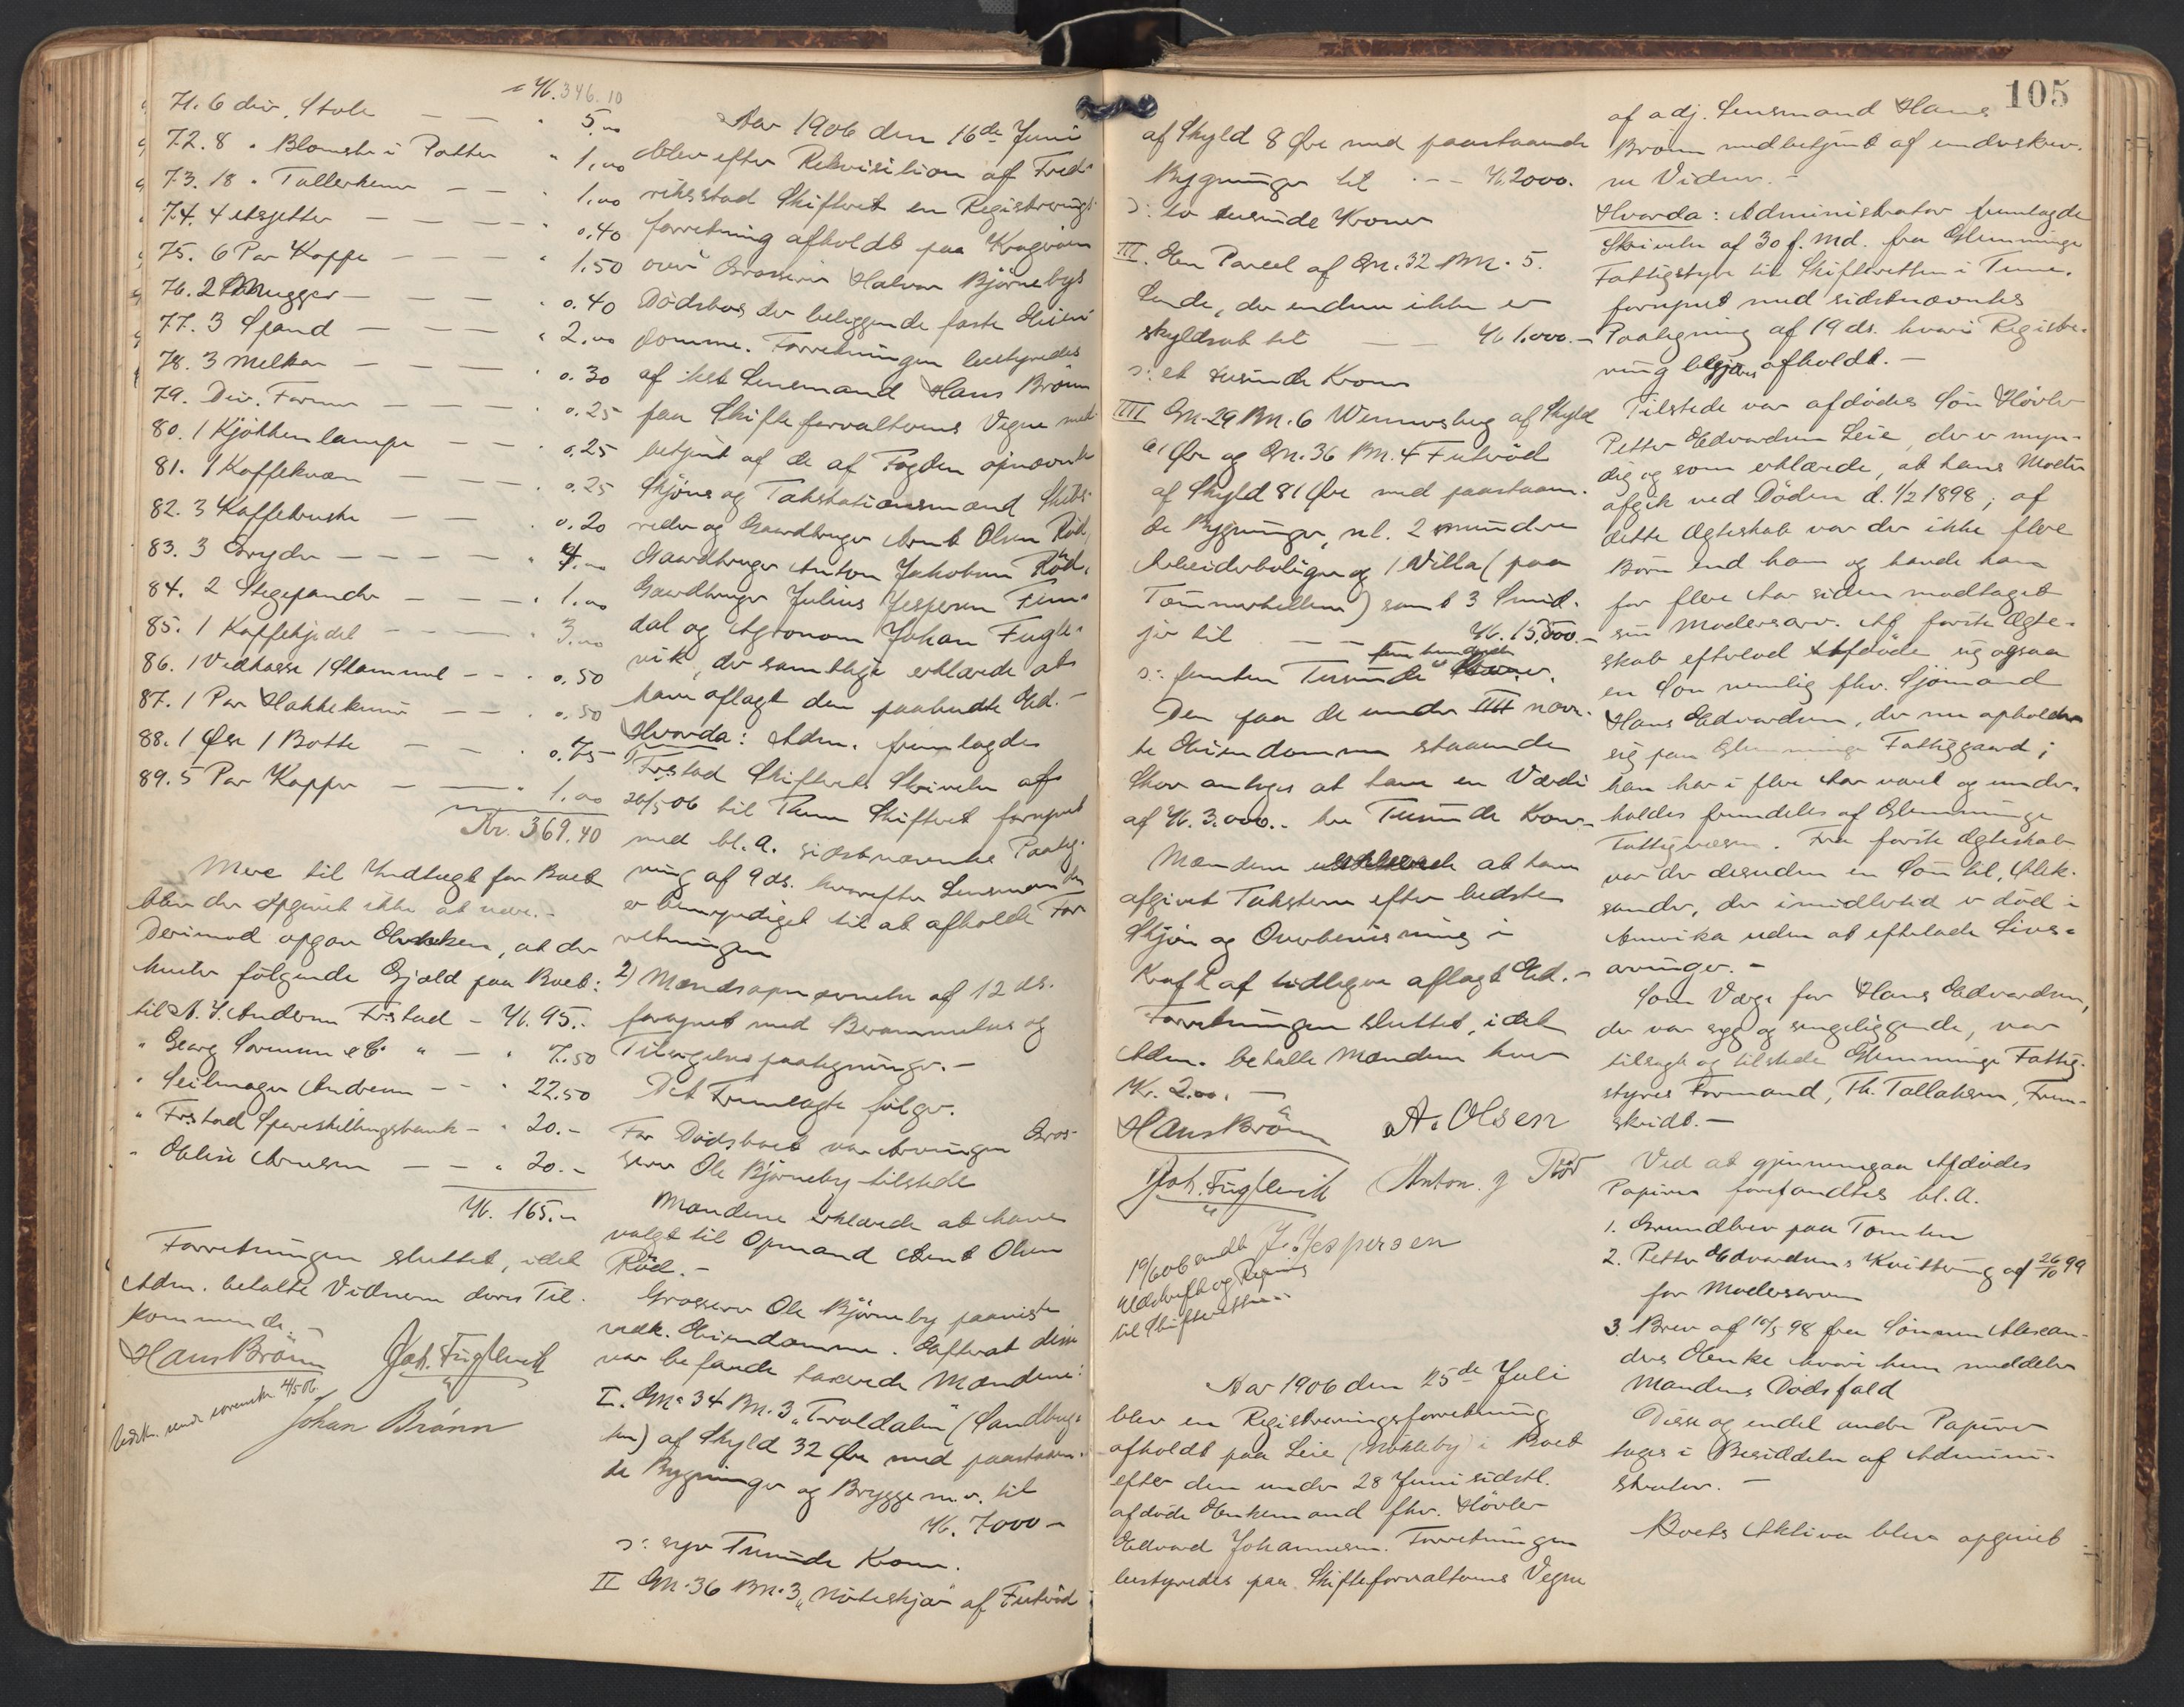 " Kr. 346.10
71. 6 div. Stole — — " 5.00
72. 8 " Blomster i Potter " 1.00
73. 18 " Tallerkener — — " 1.00
74. 4 — — — " 0.40
75. 6 Par Koppe — — — " 1.50
76. 2 Mugger — — — " 0.40
77. 3 Spand — — — " 2.00
78. 3 Melkar — — — " 0.30
79. Div. Former — — — " 0.25
80. 1 Kjökkenlampe — — " 0.25
81. 1 Kaffekværn — — — " 0.25
82. 3 Kaffekruker — — " 0.20
83. 3 Gryder — — — — " 4.00
84. 2 Stegepander — — — " 1.00
85. 1 Kaffekjedel — — — " 3.00
86. 1 Vedkasse 1 Skammel — — " 0.50
87. 1 Par Hakkekniv — — " 0.50
88. 1 Öse 1 Bötte — — " 0.75
89. 5 Par Kopper — — " 1.00
Kr. 369.40
Mere til Indtægt for Boet
blev der opgivet ikke at være.-
Derimod opgav Enken, at der
hviler fölgende Gjæld paa Boet:
til A. J. Andersen Fr.stad - Kr. 95.-
" Georg Sörensen & Co " — " 7.50
" Seilmager Andresen - - " 22.50
" Fr.stad Spareskillingsbank - " 20.-
" Arnesen — — " 20.-
Kr. 165.-
Forretningen sluttet, idet
Adm. betalte Vidnerne deres Til-
kommende.-
Hans Brönn Joh. Fuglevik
Johan Brönn
Aar 1906 den 16de Juni
blev efter Rekvisition af Fred-
riksstad Skifteret en Registrerings-
forretning afholdt paa Kragerøen
over Grosserer Halvor Björnebys
Dödsbos der beliggende faste Eien-
domme. Forretningen bestyredes
af Lensmand Hans Brönn
paa Skifteforvalterens Vegne med-
betjent af de af Fogden opnævnte
Skjöns og Takstationsmænd Skibs-
reder og Gaardbruger Arnt Olsen Röd,
Gaardbruger Anton Jakobsen Röd,
Gaardbruger Julius Jespersen Fem-
dal og Agronom Johan Fugle-
vik, der samtlige erklærede at
have aflagt den paabudte Ed.-
Hvorda: Adm. fremlagde
1) Fr.stad Skifterets Skrivelse af
26/5 06 til Tune Skifteret forsynet
med bl. a. sidstnævntes Paateg-
ning af 9 ds. hvorefter Lensmanden
er bemyndiget til at afholde For-
retningen
2) Mandsopnævnelse af 12 ds.
forsynet med Berammelses og
Tilsigelses paategninger.-
Det Fremlagte fölger.
For Dödsboet var Arvingen Gros-
serer Ole Björneby tilstede
Mændene erklærede at have
valgt til Opmand Arnt Olsen
Röd.-
Grosserer Ole Björneby paaviste
vedk. Eiendomme. Efterat disse
var befarede takserede Mændene:
I. Gn. 34 Bn. 3 "Troldalen" (Sandbug-
ten) af Skyld 32 Öre med paastaaen-
de Bygninger og Brygge m.v. til
Kr. 7000-
ɔ: syv Tusinde Kroner.
II Gn. 36 Bn. 3 "Noteskjær" af Futeröd
af Skyld 8 Öre med paastaaende
Bygninger til . — Kr. 2000.
ɔ: to tusinde Kroner
III. En Parcel af Gn. 32 Bn. 5.
Lunde, der endnu ikke er
skyldsat til — — Kr. 1.000.-
ɔ: et tusinde Kroner
IIII Gn. 29 Bn. 6 Wennersberg af Skyld
Öre og Gn. 36 Bn. 4 Futeröd
af Skyld 81 Öre med paastaaen-
de Bygninger, nl. 2 mindre
Arbeiderboliger og 1 Villa (paa
Tömmerhellen) samt 3 Smid-
jer til — — Kr. 15,500.-
fem hundrede
ɔ: femten Tusinde Kroner.
Den paa de under IIII nævn-
te Eiendomme staaende
Skov antages at have en Værdi
af Kr. 3.000.- tre Tusinde Kroner-
Mændene erklærede at have
afgivet Taksterne efter bedste
Skjön og Overbevisning i
Kraft af tidligere aflagt Ed.-
Forretningen sluttet, idet
Adm. betalte Mændene hver
Kr. 2.00.-
Hans Brönn A. Olsen
Joh. Fuglevik Anton. J Röd
J. Jespersen
19/6 06 sendt
Udskrift og Regning
til Skifteretten.-
Aar 1906 den 25de Juli
blev en Registreringsforretning
afholdt paa Leie (Nökleby) i Boet
efter den under 28 Juni sidstl.
afdöde Enkemand fhv. Hövler
Edvard Johannesen. Forretningen
bestyredes paa Skifteforvalterens Vegne
105
af adj. Lensmand Hans
Brönn medbetjent af underskrev-
ne Vidner.-
Hvorda: Administrator fremlagde
Skrivelse af 30 f. Md. fra Glemminge
Fattigstyre til Skifteretten i Tune.
forsynet med sidstnævntes
Paategning af 19 ds. hvori Registre-
ring begjæres afholdt.-
Tilstede var afdödes Sön Hövler
Petter Edvardsen Leie, der er myn-
dig og som erklærede, at hans Moder
afgik ved Döden d. 1/2 1898; af
dette Ægteskab var der ikke flere
Börn end ham og havde han
for flere Aar siden modtaget
sin Mödrearv. Af förste Ægte-
skab efterlod Afdöde sig ogsaa
en Sön nemlig fhv. Sjömand
Hans Edvardsen, der nu opholder
sig paa Glemminge Fattiggaard;
han har i flere Aar været og under-
holdes fremdeles af Glemminge
Fattigvæsen. Fra förste Ægteskab
var der desuden en Sön til, Alek-
sander, der imidlertid er död i
Amerika uden at efterlade Livs-
arvinger.-
Som Værge for Hans Edvardsen,
der var syg og sengeliggende, var
tilsagt og tilstede Glemminge Fattig-
styres Formand, Th. Tallaksen, Frem-
skridt.-
Ved at gjennemgaa Afdödes
Papirer forefandtes bl. a.
1. Grundbrev paa Tomten
2. Petter Edvardsens Kvittering af 26/10 99
for Mödrearven
3. Brev af 10/5 98 fra Sönnen Alexan-
ders Enke hvori hun meddeler
Mandens Dödsfald
Disse og endel andre Papirer
toges i Besiddelse af Admini-
strator.-
Boets Aktiva blev opgivet